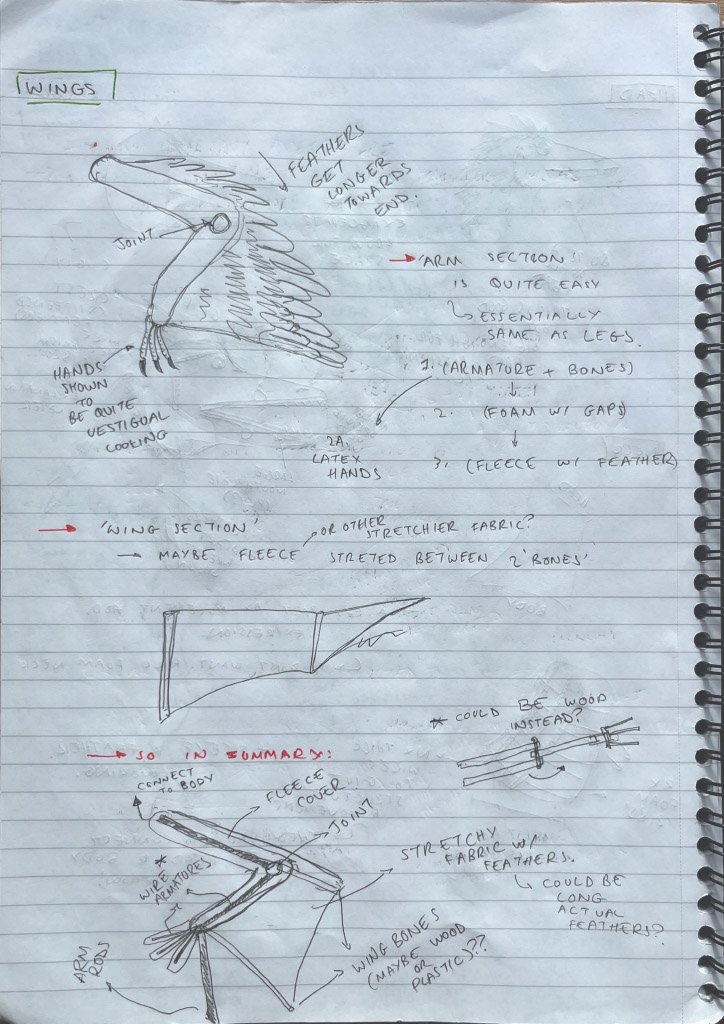 WINGS
FEATHERS
GET
LONGER
TOWARDS
END.
JOINT
HANDS
SHOWN
TO
BE QUITE
VESTIGUAL
LOOKING
'ARM SECTION'
IS QUITE EASY
ESSENTIALLY
SAME AS LEGS.
1. (ARMATURE + BONES)
2. (FOAM W/ GAPS)
2A.
LATEX
HANDS
3. (FLEECE W/ FEATHER)
'WING SECTION'
OR OTHER
STRETCHIER FABRIC?
MAYBE FLEECE STRETED BETWEEN 2 'BONES'
* COULD BE WOOD
INSTEAD?
SO IN SUMMARY:
CONNECT
TO BODY
FLEECE
COVER
JOINT
*
WIRE
ARMATURES
STRETCHY
FABRIC W/
FEATHERS.
COULD BE
LONG
ACTUAL
FEATHERS?
ARM
RODS
WING BONES
(MAYBE WOOD
OR
PLASTIC)??